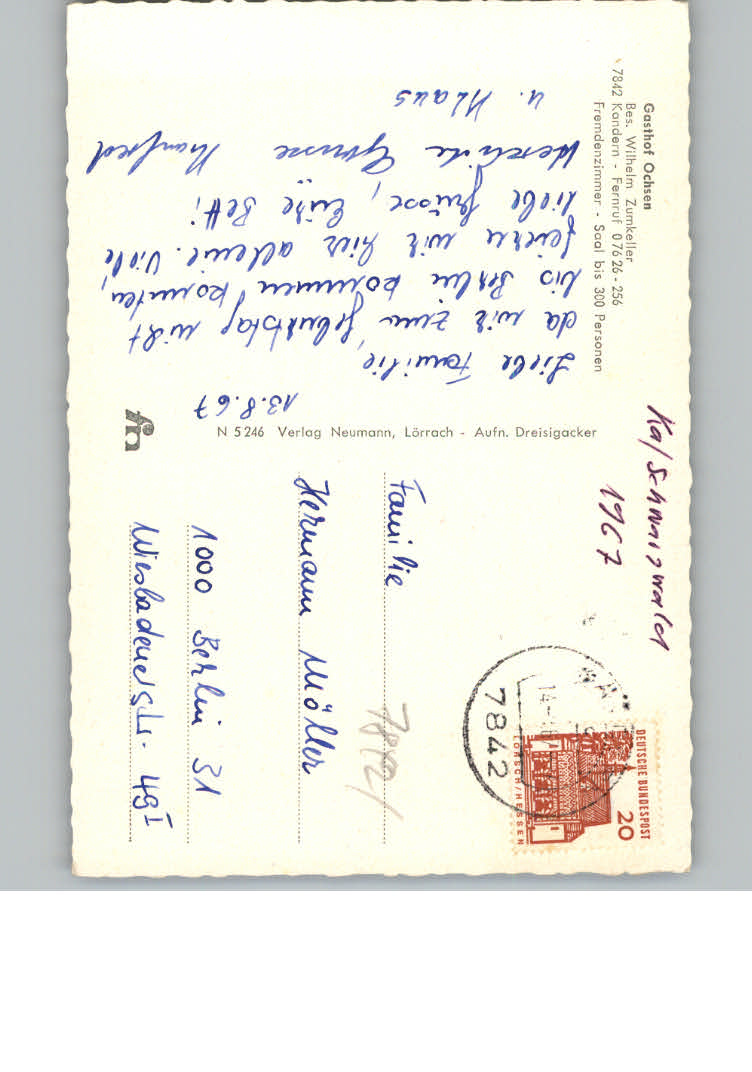 Gasthof Ochsen
Bes. Wilhelm Zumkeller
7842 Kandern - Fernruf 07626 - 256
Fremdenzimmer - Saal bis 300 Personen
13.8.67
Liebe Familie,
da wir zum Geburtstag nicht
bis Berlin kommen konnten,
feiern wir hier alleine. Viele
liebe Grüsse, Eure Betti
Herzliche Grüsse Manfred
u. Klaus
N 5246 Verlag Neumann, Lörrach - Aufn. Dreisigacker
fn
Ka/Schwarzwald
1967
7842
DEUTSCHE BUNDESPOST
20
LORSCH/HESSEN
Familie
Hermann Möller
1000 Berlin 31
Wiesbadenerstr. 49 I